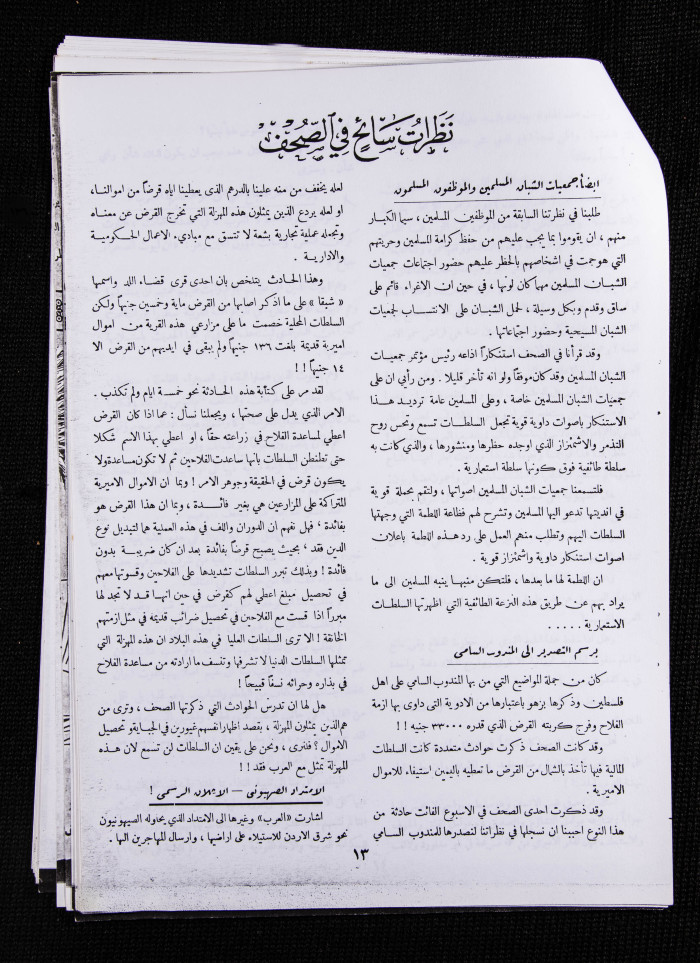 نظرات سائح في الصحف
ايضاً: جمعيات الشبان المسلمين والموظفون المسلمون
طلبنا في نظرتنا السابقة من الموظفين المسلمين ، سيما الكبار
منهم ، ان يقوموا بما يجب عليهم من حفظ كرامة المسلمين وحريتهم
التي هوجمت في اشخاصهم بالحظر عليهم حضور اجتماعات جمعيات
الشبان المسلمين مهما كان لونها ، في حين ان الاغراء قائم على
ساق وقدم وبكل وسيلة ، لحمل الشبان على الانتساب لجمعيات
الشبان المسيحية وحضور اجتماعاتها .
وقد قرأنا في الصحف استنكاراً اذاعه رئيس مؤتمر جمعيات
الشبان المسلمين وقد كان موفقاً ولو انه تأخر قليلا . ومن رأيي ان على
جمعيات الشبان المسلمين خاصة ، وعلى المسلمين عامة ترديد هذا
الاستنكار باصوات داوية قوية تجعل السلطات تسمع وتحس روح
التذمر والاشمئزاز الذي اوجده حظرها ومنشورها ، والذي كانت به
سلطة طائفية فوق كونها سلطة استعمارية .
فلتسمعنا جمعيات الشبان المسلمين اصواتها ، ولتقم بحملة قوية
في انديتها تدعو اليها المسلمين وتشرح لهم فظاعة اللطمة التي وجهتها
السلطات اليهم وتطلب منهم العمل على رد هذه اللطمة باعلان
اصوات استنكار داوية واشمئزاز قوية .
ان اللطمة لها ما بعدها ، فلتكن منبهاً ينبه المسلمين الى ما
يراد بهم عن طريق هذه النزعة الطائفية التي اظهرتها السلطات
الاستعمارية . . . . .
برسم التصدير الى المندوب السامي
كان من جملة المواضيع التي من بها المندوب السامي على اهل
فلسطين وذكرها بزهو باعتبارها من الادوية التى داوى بها ازمة
الفلاح وفرج كربته القرض الذي قدره ٣٣٠٠٠ جنيه ! !
وقد كانت الصحف ذكرت حوادث متعددة كانت السلطات
المالية فيها تأخذ بالشمال من القرض ما تعطيه باليمين استيفاء للاموال
الاميرية .
وقد ذكرت احدى الصحف في الاسبوع الفائت حادثة من
هذا النوع احببنا ان نسجلها في نظراتنا لنصدرها للمندوب السامي
لعله يخفف من منه علينا بالدرهم الذى يعطينا اياه قرضاً من اموالنا،
او لعله يردع الذين يمثلون هذه المهزلة التي تخرج القرض عن معناه
وتجعله عملية تجارية بشعة لا تتسق مع مبادىء الاعمال الحكومية
والادارية .
وهذا الحادث يتلخص بان احدى قرى قضاء اللد واسمها
« شبقا » على ما اذكر اصابها من القرض ماية وخمسين جنيهاً ولكن
السلطات المحلية خصمت ما على مزارعي هذه القرية من اموال
اميرية قديمة بلغت ١٣٦ جنيهاً ولم يبقى في ايديهم من القرض الا
١٤ جنيهاً ! !
لقد مر على كتابة هذه الحادثة نحو خمسة ايام ولم تكذب .
الامر الذي يدل على صحتها ، ويجعلنا نسأل : عما اذا كان القرض
اعطي لمساعدة الفلاح في زراعته حقاً ، او اعطي بهذا الاسم شكلا
حتى تطنطن السلطات بانها ساعدت الفلاحين ثم لا تكون مساعدة ولا
يكون قرض في الحقيقة وجوهر الامر ! وبما ان الاموال الاميرية
المتراكة على المزارعين هي بغير فائدة ، وبما ان هذا القرض هو
بفائدة ، فهل نفهم ان الدوران واللف في هذه العملية هما لتبديل نوع
الدين فقد ، بحيث يصبح قرضاً بفائدة بعد ان كان ضريبة بدون
فائدة ! وبذلك تبرر السلطات تشديدها على الفلاحين وقسوتها معهم
في تحصيل مبلغ اعطي لهم كقرض في حين انها قد لا تجد لها
مبرراً اذا قست مع الفلاحين في تحصيل ضرائب قديمة في مثل ازمتهم
الخانقة ! الا ترى السلطات العليا في هذه البلاد ان هذه المهزلة التي
تمثلها السلطات الدنيا لا تشرفها وتنسف ما ارادته من مساعدة الفلاح
في بذاره وحراثه نسفاً قبيحاً !
هل لها ان تدرس الحوادث التي ذكرتها الصحف ، وترى من
هم الذين يمثلون المهزلة ، بقصد اظهار انفسهم غيورين في الجباية وتحصيل
الاموال ؟ فلنرى ، ونحن على يقين ان السلطات لن تسمع لان هذه
المهزلة تمثل مع العرب فقد ! !
الامتداد الصهيوني — الاعلان الرسمي !
اشارت «العرب» وغيرها الى الامتداد الذي يحاوله الصهيونيون
نحو شرق الاردن للاستيلاء على اراضيها ، وارسال المهاجرين اليها .
١٣